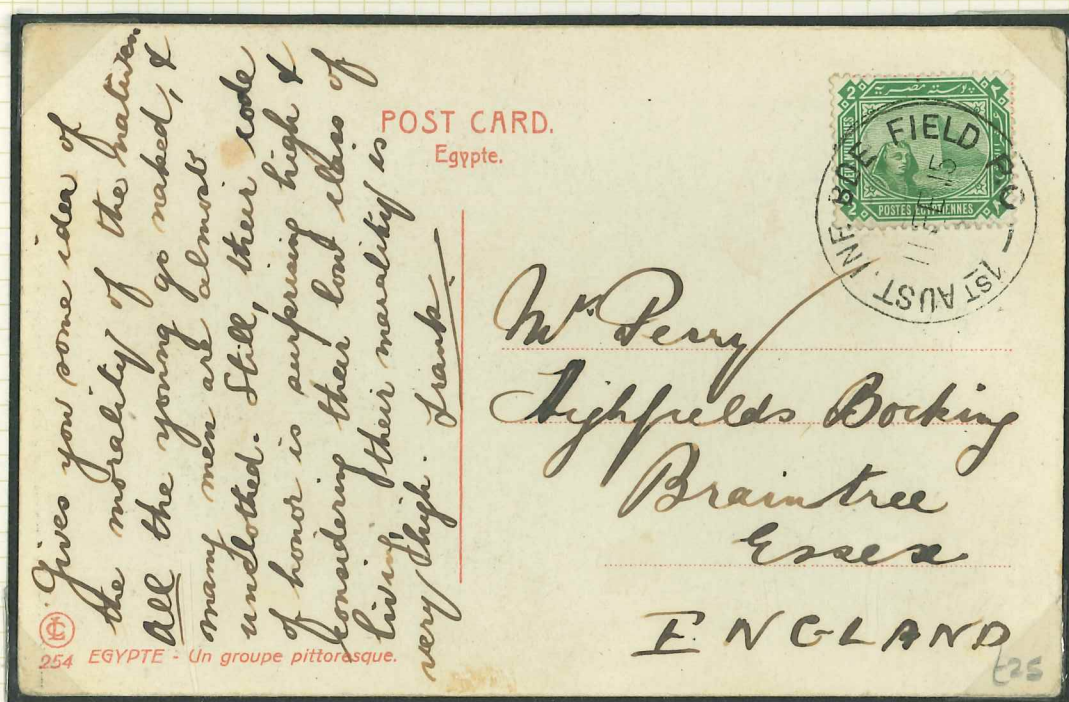 Gives you some idea of
the morality of the natives
All the young go naked, &
many men are almost
unclothed. Still, their code
of honor is surprising high &
considering their low class of
living, their morality is
very high. Frank.
POST CARD.
Egypte.
2 بوسته مصرية ٢
2 POSTES EGYPTIENNES
1ST AUST. INF. BDE FIELD P.O.
FE 15
Mr. Perry
Highfields Bocking
Braintree
Essex
ENGLAND
LC
254 EGYPTE - Un groupe pittoresque.
£25